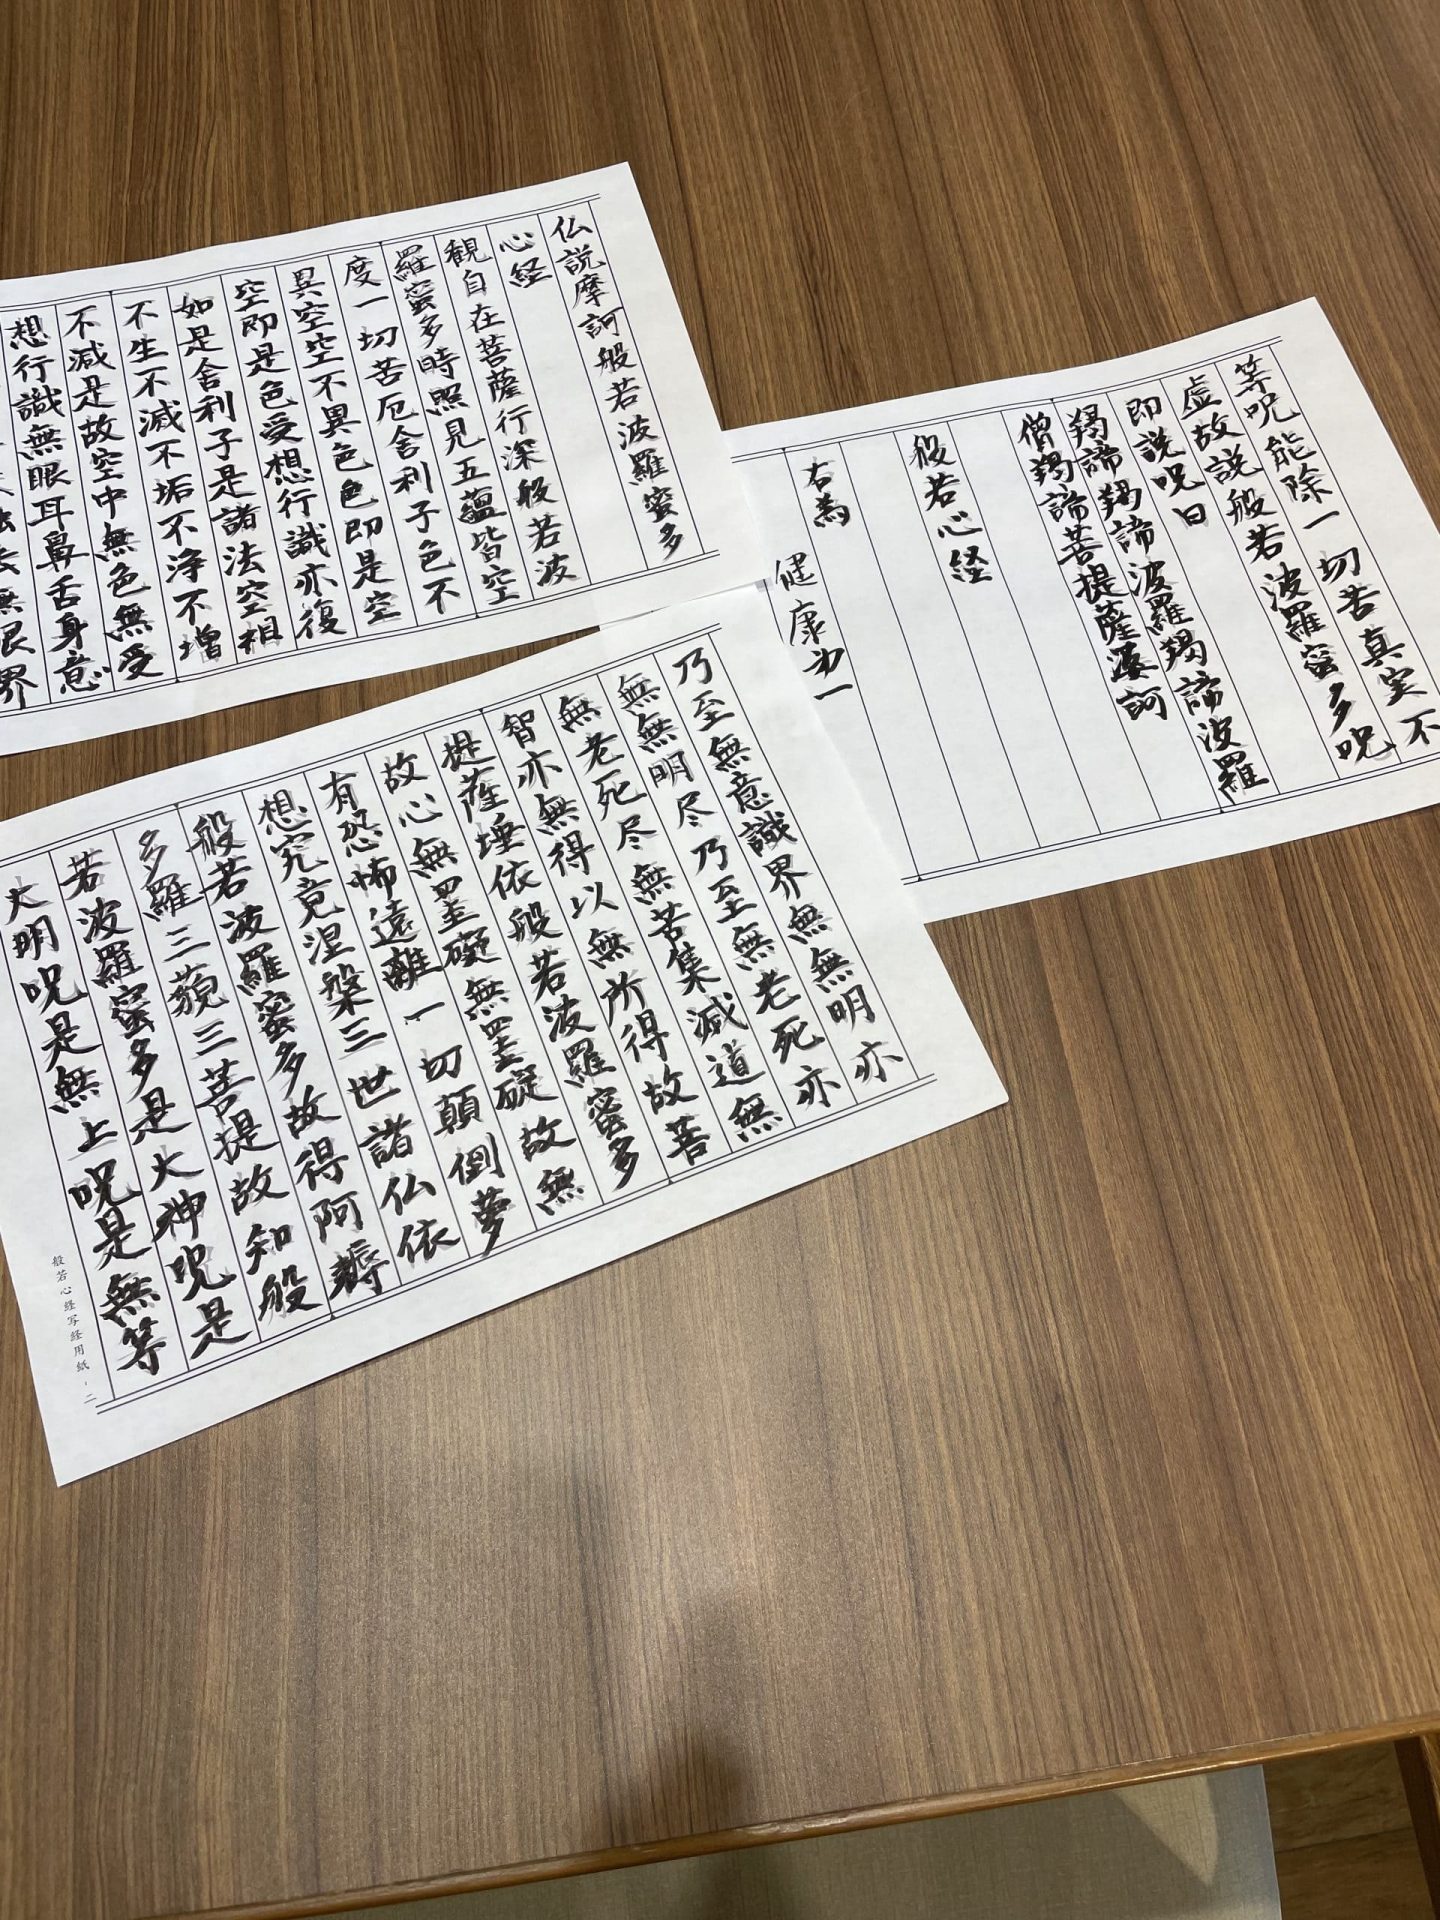 仏説摩訶般若波羅蜜多
心経
観自在菩薩行深般若波
羅蜜多時照見五蘊皆空
度一切苦厄舎利子色不
異空空不異色色即是空
空即是色受想行識亦復
如是舎利子是諸法空相
不生不滅不垢不浄不増
不減是故空中無色無受
想行識無眼耳鼻舌身意
法無眼界
乃至無意識界無無明亦
無無明尽乃至無老死亦
無老死尽無苦集滅道無
智亦無得以無所得故菩
提薩埵依般若波羅蜜多
故心無罣礙無罣礙故無
有恐怖遠離一切顛倒夢
想究竟涅槃三世諸仏依
般若波羅蜜多故得阿耨
多羅三藐三菩提故知般
若波羅蜜多是大神呪是
大明呪是無上呪是無等
般若心経写経用紙-二
等呪能除一切苦真実不
虚故説般若波羅蜜多呪
即説呪曰
羯諦羯諦波羅羯諦波羅
僧羯諦菩提薩婆訶
般若心経
右為
健康第一